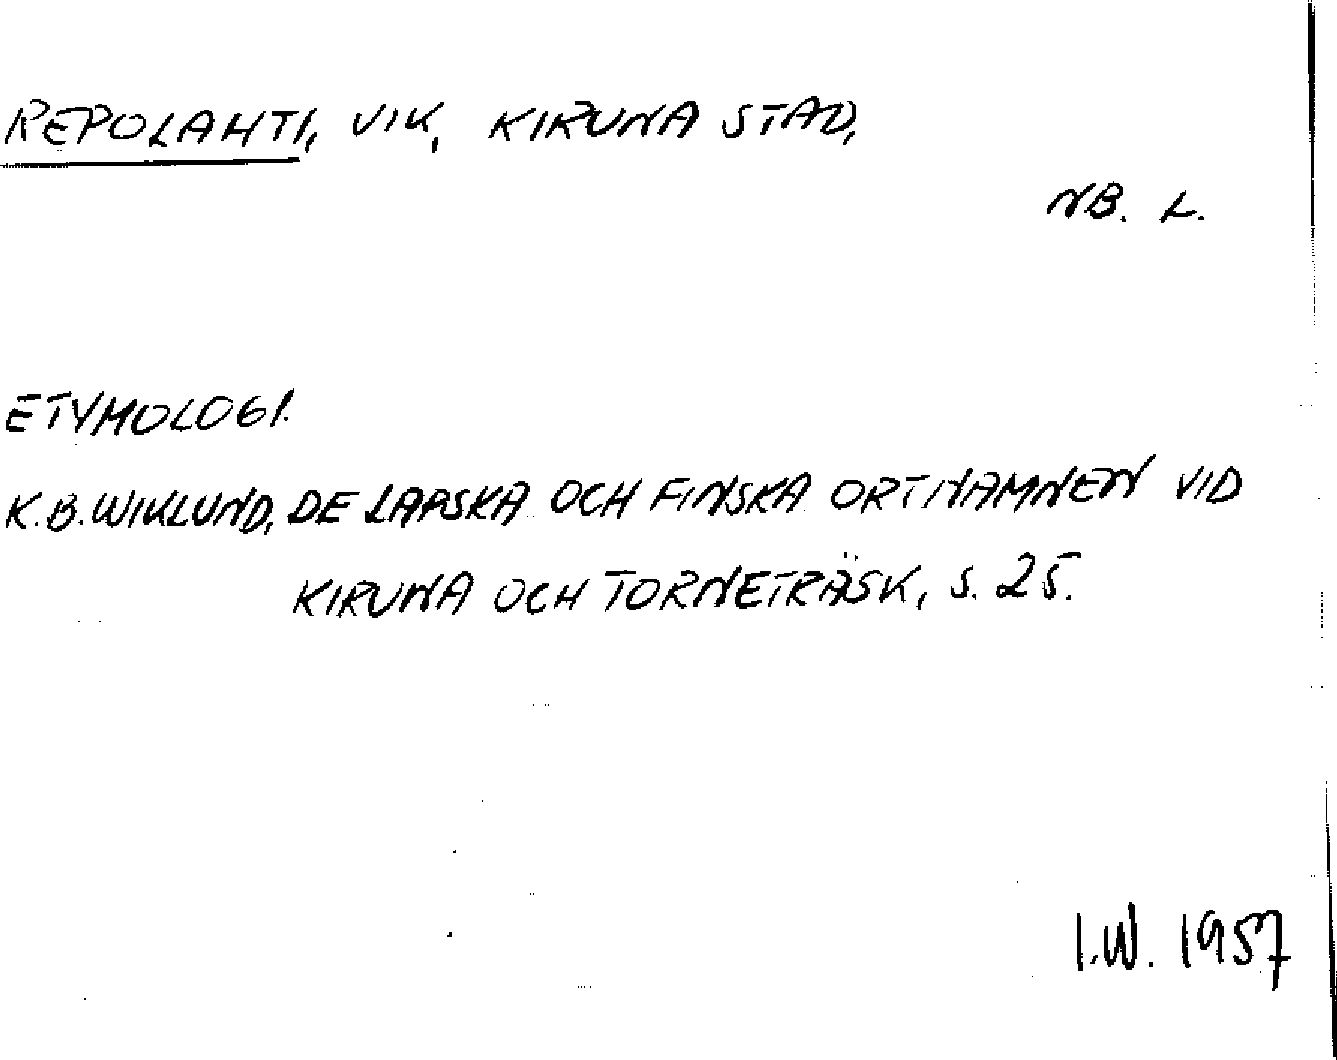 REPOLAHTI, VIK, KIRUNA STAD,
NB. L.
ETYMOLOGI.
K.B. WIKLUND, DE LAPSKA OCH FINSKA ORTNAMNEN VID
KIRUNA OCH TORNETRÄSK, S. 25.
I.W. 1957